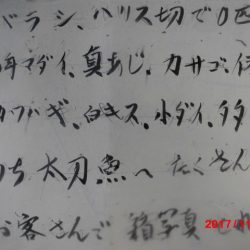 バラシ、ハリス切で0匹
年マダイ、真あじ、カサゴ、イ
カワハギ、白キス、小ダイ、多
太刀魚へ たくさん
お客さんで 箱写真
2017/11